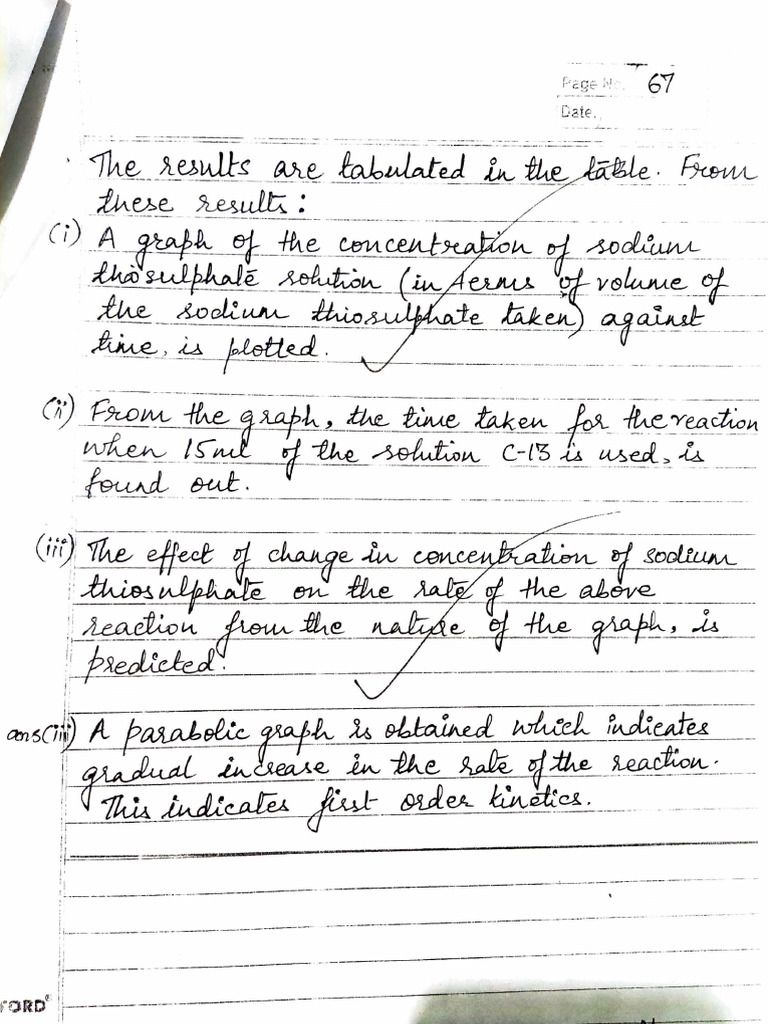 Page No. 67
Date.
The results are tabulated in the table. From
these results:
(i) A graph of the concentration of sodium
thosulphate solution (in terms of volume of
the sodium thiosulphate taken) against
time, is plotted.
(ii) From the graph, the time taken for the reaction
when 15ml of the solution C-13 is used, is
found out.
(iii) The effect of change in concentration of sodium
thiosulphate on the rate of the above
reaction from the nature of the graph, is
predicted.
ans(iii) A parabolic graph is obtained which indicates
gradual increase in the rate of the reaction.
This indicates first order kinetics.